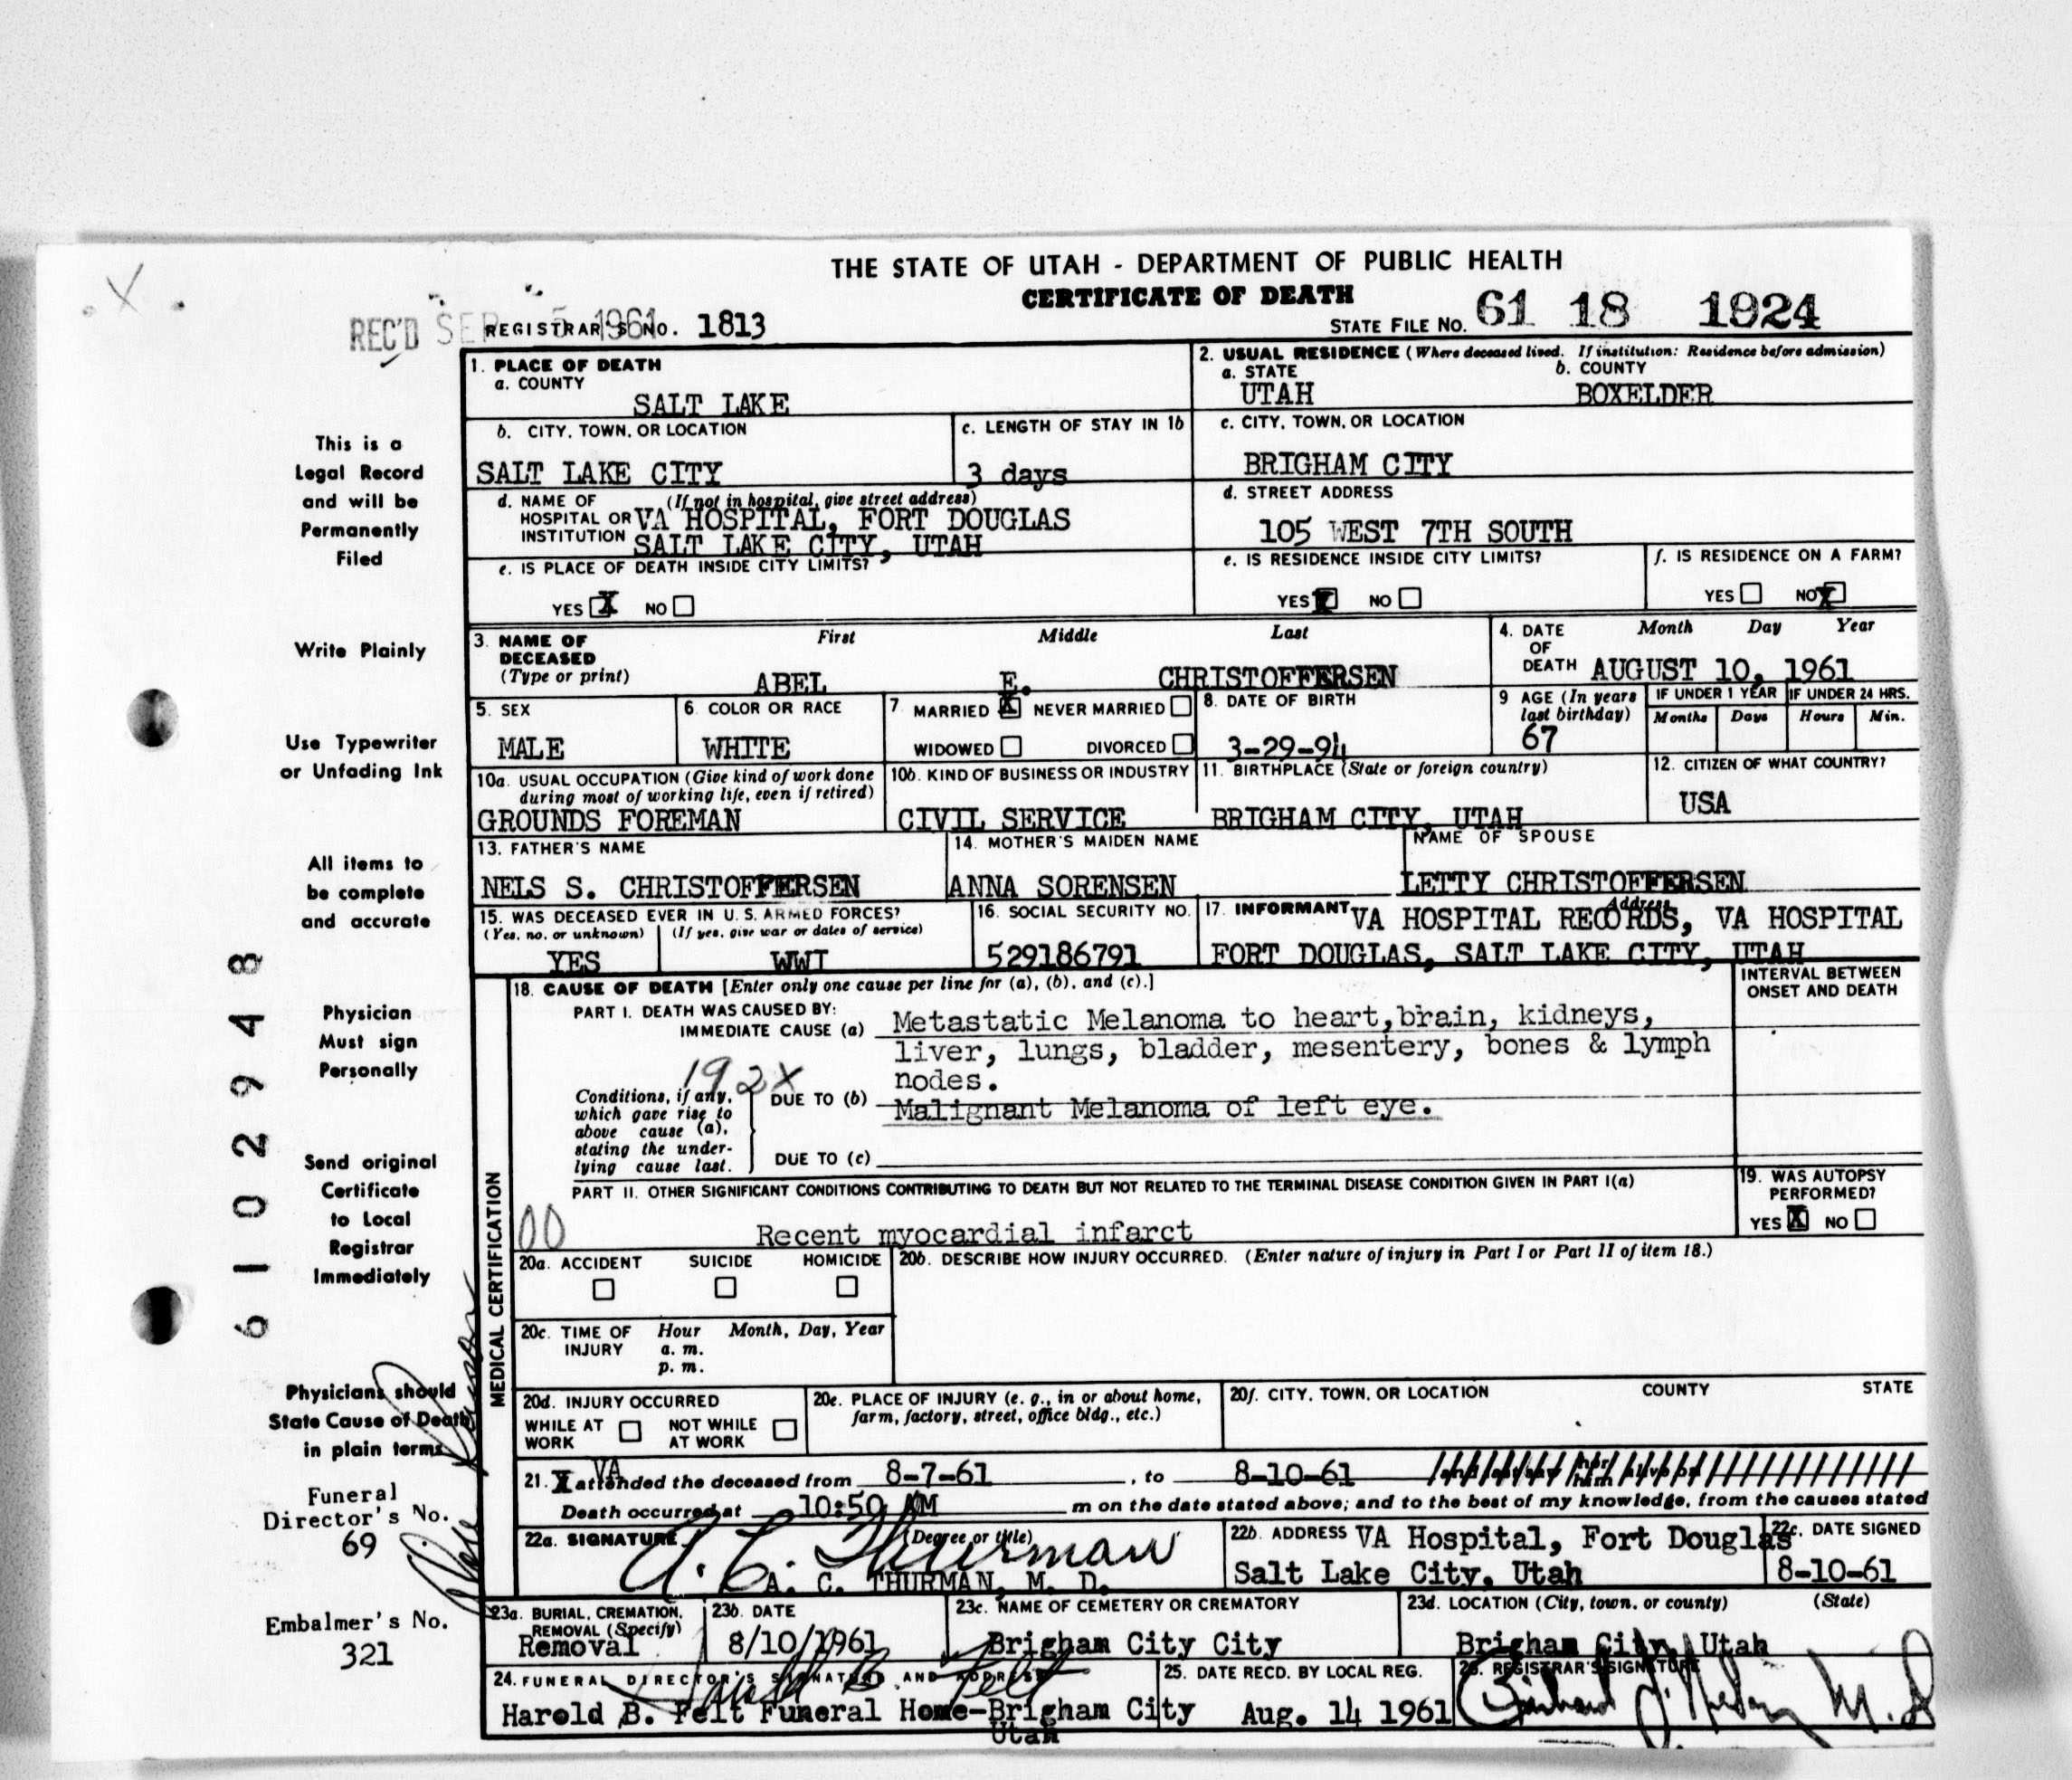 THE STATE OF UTAH - DEPARTMENT OF PUBLIC HEALTH
CERTIFICATE OF DEATH
REC'D SEP 1961 REGISTRAR'S NO. 1813
STATE FILE NO. 61 18 1924
1. PLACE OF DEATH
a. COUNTY
SALT LAKE
2. USUAL RESIDENCE (Where deceased lived. If institution: Residence before admission)
a. STATE b. COUNTY
UTAH BOXELDER
b. CITY, TOWN, OR LOCATION
SALT LAKE CITY
c. LENGTH OF STAY IN 1b
3 days
c. CITY, TOWN, OR LOCATION
BRIGHAM CITY
d. NAME OF (If not in hospital, give street address)
HOSPITAL OR VA HOSPITAL, FORT DOUGLAS
INSTITUTION SALT LAKE CITY, UTAH
d. STREET ADDRESS
105 WEST 7TH SOUTH
e. IS PLACE OF DEATH INSIDE CITY LIMITS?
YES X NO
e. IS RESIDENCE INSIDE CITY LIMITS?
YES X NO
f. IS RESIDENCE ON A FARM?
YES NO X
3. NAME OF First Middle Last
DECEASED
(Type or print) ABEL E. CHRISTOFFERSEN
4. DATE Month Day Year
OF
DEATH AUGUST 10, 1961
5. SEX
MALE
6. COLOR OR RACE
WHITE
7. MARRIED X NEVER MARRIED
WIDOWED DIVORCED
8. DATE OF BIRTH
3-29-94
9 AGE (In years
last birthday)
67
IF UNDER 1 YEAR IF UNDER 24 HRS.
Months Days Hours Min.
10a. USUAL OCCUPATION (Give kind of work done
during most of working life, even if retired)
GROUNDS FOREMAN
10b. KIND OF BUSINESS OR INDUSTRY
CIVIL SERVICE
11. BIRTHPLACE (State or foreign country)
BRIGHAM CITY, UTAH
12. CITIZEN OF WHAT COUNTRY?
USA
13. FATHER'S NAME
NELS S. CHRISTOFFERSEN
14. MOTHER'S MAIDEN NAME
ANNA SORENSEN
NAME OF SPOUSE
LETTY CHRISTOFFERSEN
15. WAS DECEASED EVER IN U. S. ARMED FORCES?
(Yes, no, or unknown) (If yes, give war or dates of service)
YES WWI
16. SOCIAL SECURITY NO.
529186791
17. INFORMANT Address
VA HOSPITAL RECORDS, VA HOSPITAL
FORT DOUGLAS, SALT LAKE CITY, UTAH
MEDICAL CERTIFICATION
18. CAUSE OF DEATH [Enter only one cause per line for (a), (b), and (c).]
INTERVAL BETWEEN
ONSET AND DEATH
PART I. DEATH WAS CAUSED BY:
IMMEDIATE CAUSE (a) Metastatic Melanoma to heart,brain, kidneys,
liver, lungs, bladder, mesentery, bones & lymph
nodes.
192X
Conditions, if any,
which gave rise to
above cause (a),
stating the under-
lying cause last.
DUE TO (b) Malignant Melanoma of left eye.
DUE TO (c)
PART II. OTHER SIGNIFICANT CONDITIONS CONTRIBUTING TO DEATH BUT NOT RELATED TO THE TERMINAL DISEASE CONDITION GIVEN IN PART I(a)
00 Recent myocardial infarct
19. WAS AUTOPSY
PERFORMED?
YES X NO
20a. ACCIDENT SUICIDE HOMICIDE
20b. DESCRIBE HOW INJURY OCCURRED. (Enter nature of injury in Part I or Part II of item 18.)
20c. TIME OF Hour Month, Day, Year
INJURY a. m.
p. m.
20d. INJURY OCCURRED
WHILE AT NOT WHILE
WORK AT WORK
20e. PLACE OF INJURY (e. g., in or about home,
farm, factory, street, office bldg., etc.)
20f. CITY, TOWN, OR LOCATION COUNTY STATE
21. X VA attended the deceased from 8-7-61, to 8-10-61 and last saw her him alive on
Death occurred at 10:50 AM m on the date stated above; and to the best of my knowledge, from the causes stated
22a. SIGNATURE (Degree or title)
A. C. Thurman
A. C. THURMAN, M. D.
22b. ADDRESS VA Hospital, Fort Douglas
Salt Lake City, Utah
22c. DATE SIGNED
8-10-61
23a. BURIAL, CREMATION,
REMOVAL (Specify)
Removal
23b. DATE
8/10/1961
23c. NAME OF CEMETERY OR CREMATORY
Brigham City City
23d. LOCATION (City, town, or county) (State)
Brigham City, Utah
24. FUNERAL DIRECTOR'S SIGNATURE AND ADDRESS
Harold B. Felt
Harold B. Felt Funeral Home-Brigham City
Utah
25. DATE RECD. BY LOCAL REG.
Aug. 14 1961
26. REGISTRAR'S SIGNATURE
This is a
Legal Record
and will be
Permanently
Filed
Write Plainly
Use Typewriter
or Unfading Ink
All items to
be complete
and accurate
Physician
Must sign
Personally
Send original
Certificate
to Local
Registrar
Immediately
Physicians should
State Cause of Death
in plain terms
Funeral
Director's No.
69
Embalmer's No.
321
6102948